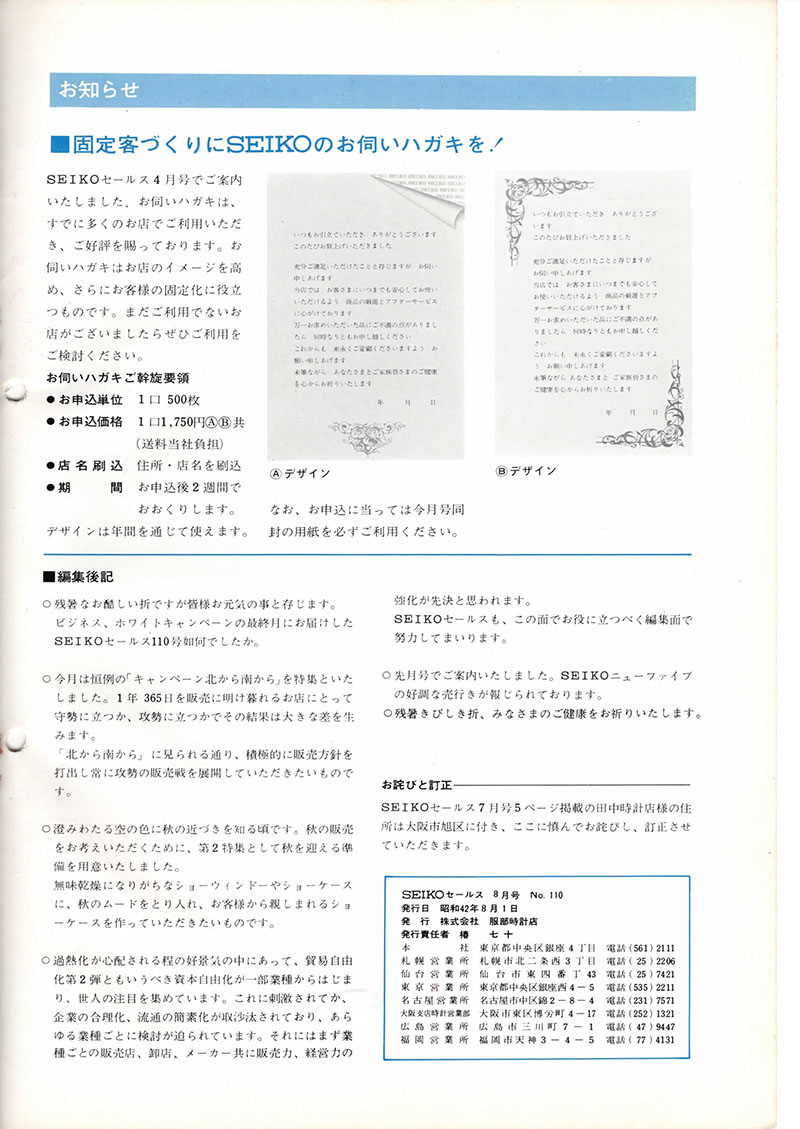 お知らせ
■固定客づくりにSEIKOのお伺いハガキを！
SEIKOセールス4月号でご案内
いたしました、お伺いハガキは、
すでに多くのお店でご利用いただ
き、ご好評を賜っております。お
伺いハガキはお店のイメージを高
め、さらにお客様の固定化に役立
つものです。まだご利用でないお
店がございましたらぜひご利用を
ご検討ください。
お伺いハガキご斡旋要領
●お申込単位 1口 500枚
●お申込価格 1口1,750円ⒶⒷ共
(送料当社負担)
●店名刷込 住所・店名を刷込
●期間 お申込後2週間で
おおくりします。
デザインは年間を通じて使えます。
SEIKO SEIKO SEIKO SEIKO
いつもお引立ていただき ありがとうございます
このたびお買上げいただきました
充分ご満足いただけたことと存じますが お伺い
申しあげます
当店では お客さまにいつまでも安心して
お使いいただけるよう 商品の厳選とアフターサービス
に心がけております
万一お求めいただいた品にご不満の点がありまし
たら 何時なりともお申し越しください
これからも 末永くご愛顧くださいますよう お
願い申しあげます
末筆ながら あなたさまとご家族皆さまのご健康
を心からお祈りいたします
年 月 日
Ⓐデザイン
いつもお引立ていただき ありがとうござ
います
このたびお買上げいただきました
充分ご満足いただけたことと存じますが
お伺い申しあげます
当店では お客さまにいつまでも安心して
お使いいただけるよう 商品の厳選とアフ
ターサービスに心がけております
万一お求めいただいた品にご不満の点があ
りましたら 何時なりともお申し越しくだ
さい
これからも 末永くご愛顧くださいますよ
う お願い申しあげます
末筆ながら あなたさまと ご家族皆さまの
ご健康を心からお祈りいたします
年 月 日
Ⓑデザイン
なお、お申込に当っては今月号同
封の用紙を必ずご利用ください。
■編集後記
○残暑なお酷しい折ですが皆様お元気の事と存じます。
ビジネス、ホワイトキャンペーンの最終月にお届けした
SEIKOセールス110号如何でしたか。
○今月は恒例の「キャンペーン北から南から」を特集といた
しました。1年365日を販売に明け暮れるお店にとって
守勢に立つか、攻勢に立つかでその結果は大きな差を生
みます。
「北から南から」に見られる通り、積極的に販売方針を
打出し常に攻勢の販売戦を展開していただきたいもので
す。
○澄みわたる空の色に秋の近づきを知る頃です。秋の販売
をお考えいただくために、第2特集として秋を迎える準
備を用意いたしました。
無味乾燥になりがちなショーウィンドーやショーケース
に、秋のムードをとり入れ、お客様から親しまれるショ
ーケースを作っていただきたいものです。
○過熱化が心配される程の好景気の中にあって、貿易自由
化第2弾ともいうべき資本自由化が一部業種からはじま
り、世人の注目を集めています。これに刺激されてか、
企業の合理化、流通の簡素化が取沙汰されており、あら
ゆる業種ごとに検討が迫られています。それにはまず業
種ごとの販売店、卸店、メーカー共に販売力、経営力の
強化が先決と思われます。
SEIKOセールスも、この面でお役に立つべく編集面で
努力してまいります。
○先月号でご案内いたしました。SEIKOニューファイブ
の好調な売行きが報じられております。
○残暑きびしき折、みなさまのご健康をお祈りいたします。
お詫びと訂正
SEIKOセールス7月号5ページ掲載の田中時計店様の住
所は大阪市旭区に付き、ここに慎んでお詫びし、訂正させ
ていただきます。
SEIKOセールス 8月号 No. 110
発行日 昭和42年8月1日
発行 株式会社 服部時計店
発行責任者 椿 七十
本社 東京都中央区銀座4丁目 電話(561)2111
札幌営業所 札幌市北二条西3丁目 電話(25)2206
仙台営業所 仙台市東四番丁43 電話(25)7421
東京営業所 東京都中央区銀座西4-5 電話(535)2211
名古屋営業所 名古屋市中区錦2-8-4 電話(231)7571
大阪支店時計営業部 大阪市東区博労町4-17 電話(252)1321
広島営業所 広島市三川町7-1 電話(47)9447
福岡営業所 福岡市天神3-4-5 電話(77)4131